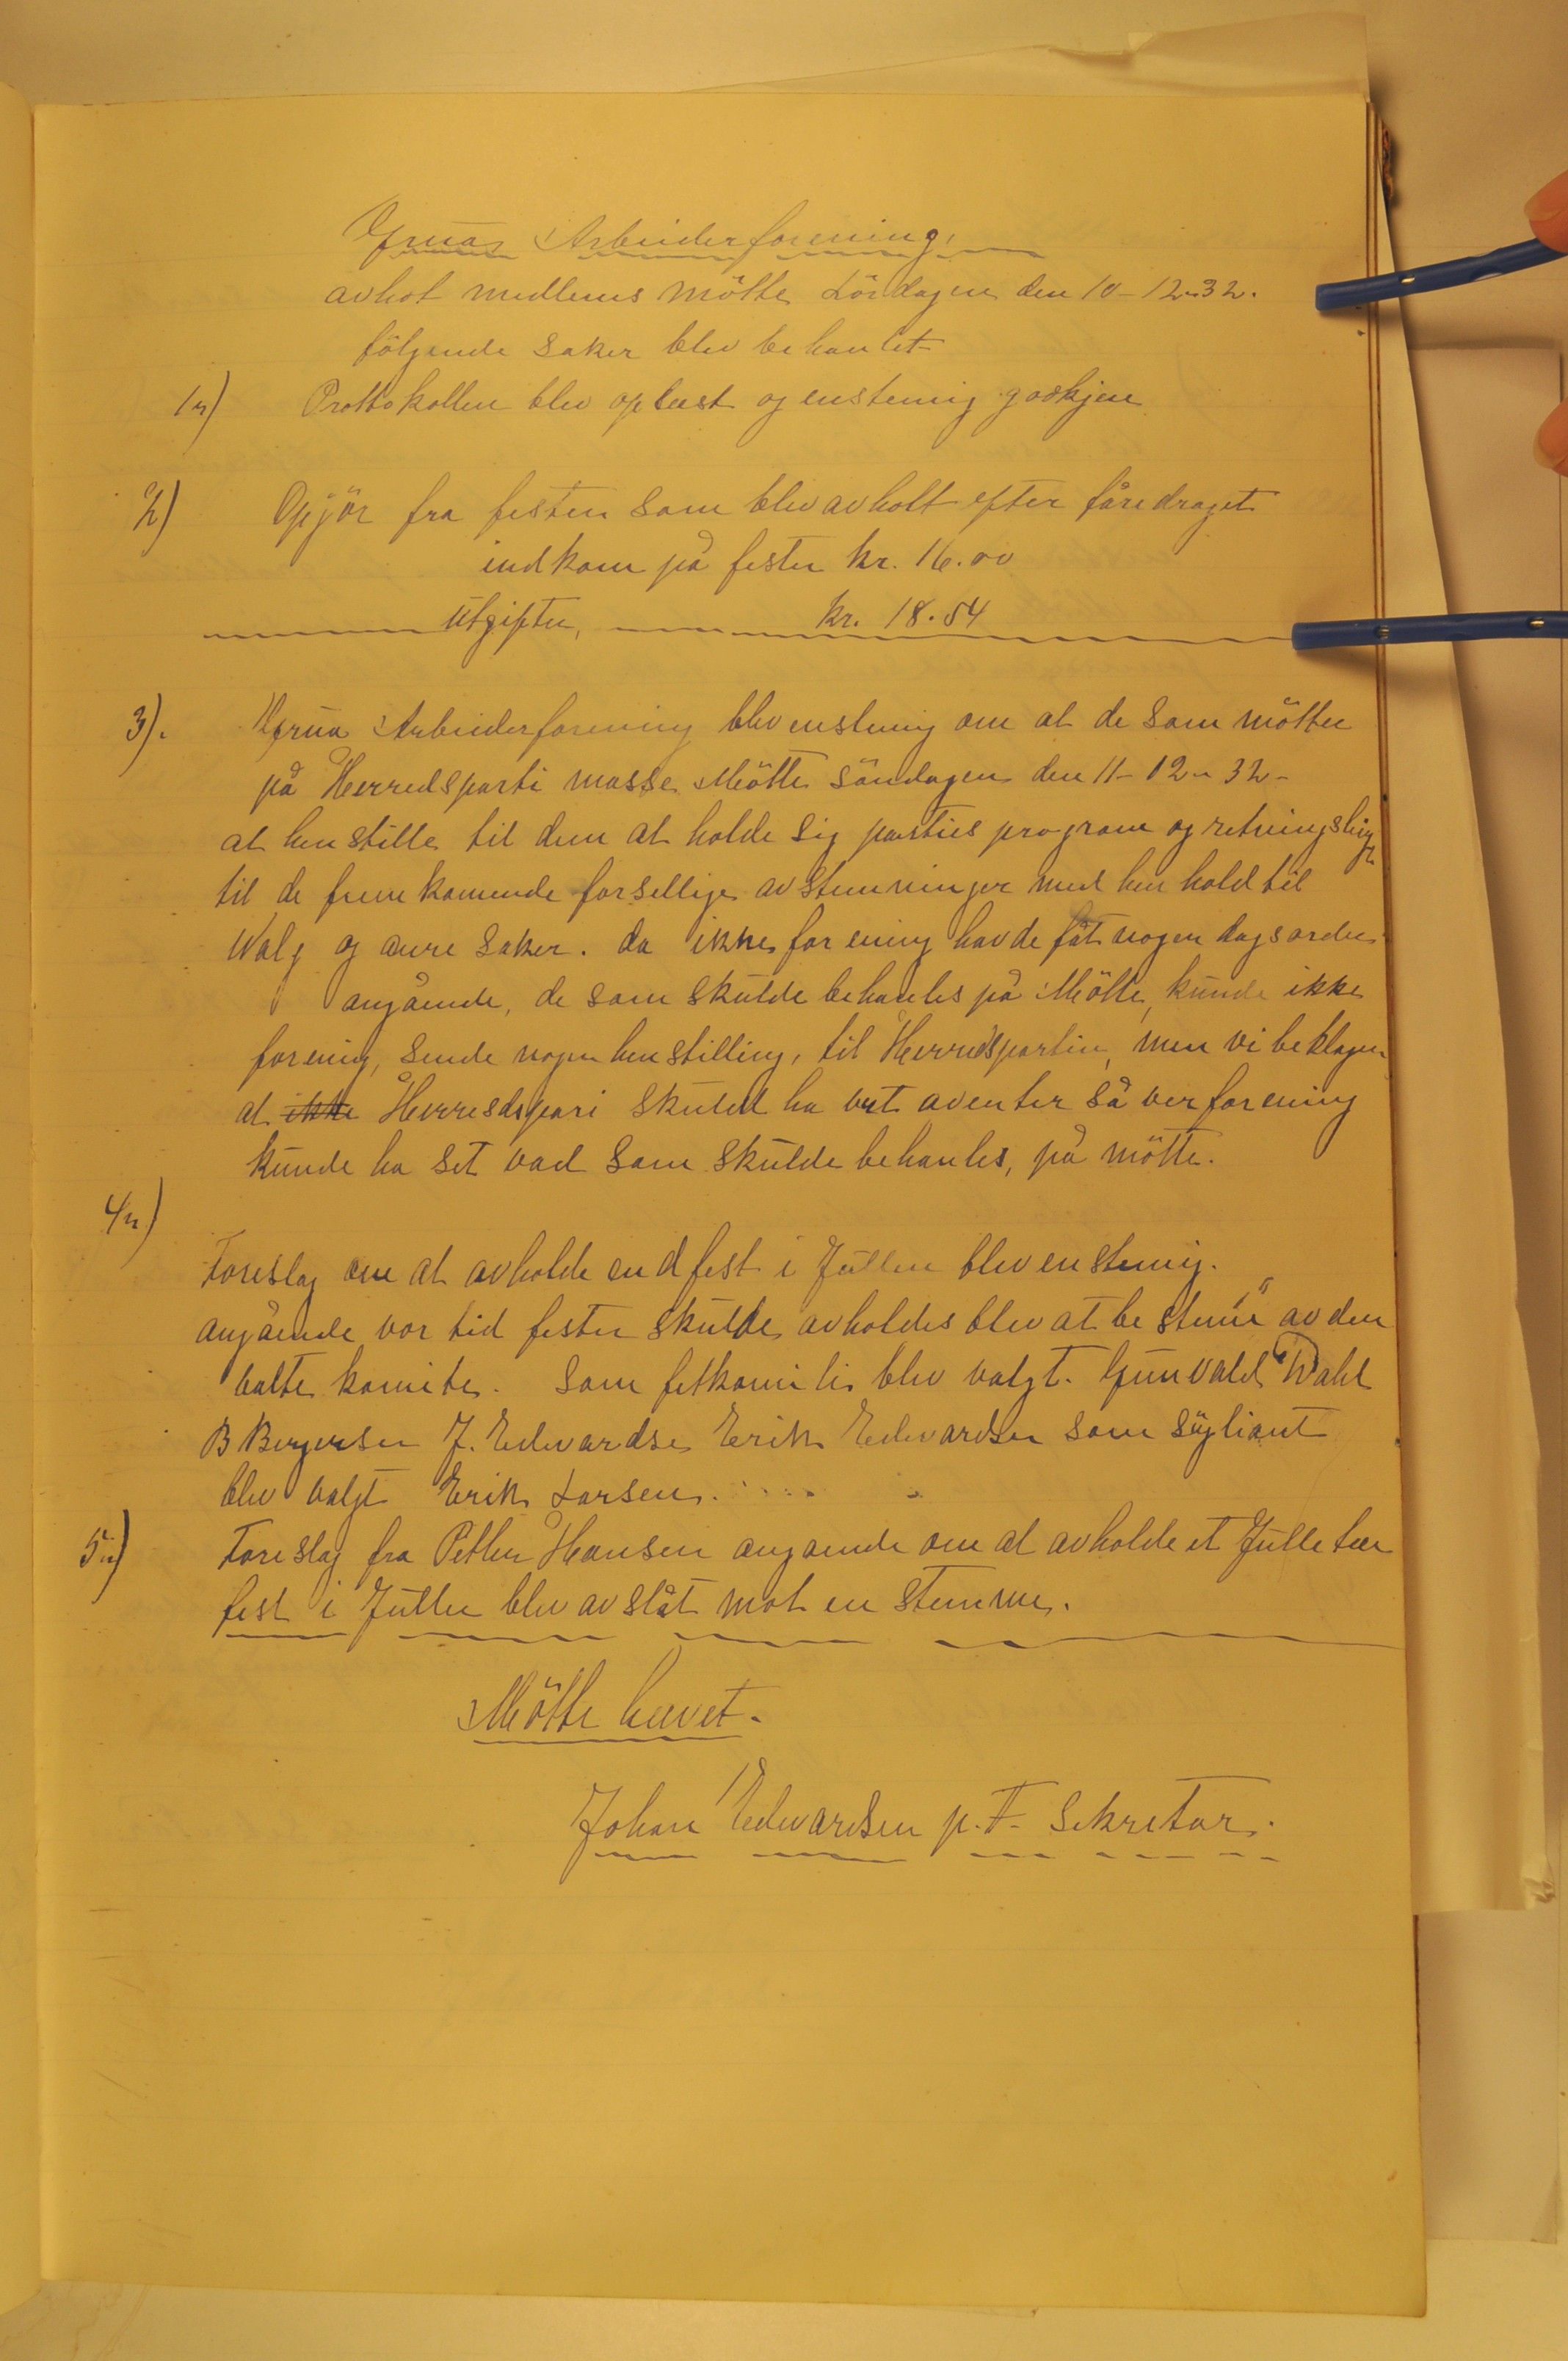 Grua Arbeiderforening,
avhot medlems mötte Lördagen den 10-12-32.
fölgende saker blev behanlet
1) Prottokollen blev oplæst og enstemig goskjen
2) Opjör fra festen som blev avholt efter fåredraget
indkom på festen kr. 16.00
Utgifter, kr. 18.54
3). Grua Arbeiderforening blev enstemig om at de som mötter
på Herredsparti masse Mötte söndagen den 11-12-32-
at henstille til dem at holde sig parties program og retningsling
til de fremkomende forsellige avstemninger med henhold til
Walg og anre saker. da ikke forening havde fåt nogen dagsorden
angående, de som skulde behanles på Mötte, kunde ikke
forening, sende nogen henstilling, til Herredspartin, men vi beklager
at ikke Herresdspari skuld ha vert aventer så ver forening
kunde ha set vad som skulde behanles, på mötte.
4)
Foreslag om at avholde end fest i Jullen blev enstemig.
angående vor tid festen skulde avholdes blev at bestemme av den
valte komite. Som fetkomite blev valgt. Gunvald Dahl
B Bergersen J. Edvardsen Erik Edvardsen som süpliant
blev valgt Erik Larsen.
5) Foreslag fra Petter Hansen angaende om at avholde et Julletræ
fest i Jullen blev avslåt mot en stemme.
Mötte hævet.
Johan Edvardsen p.T. Sekretær.